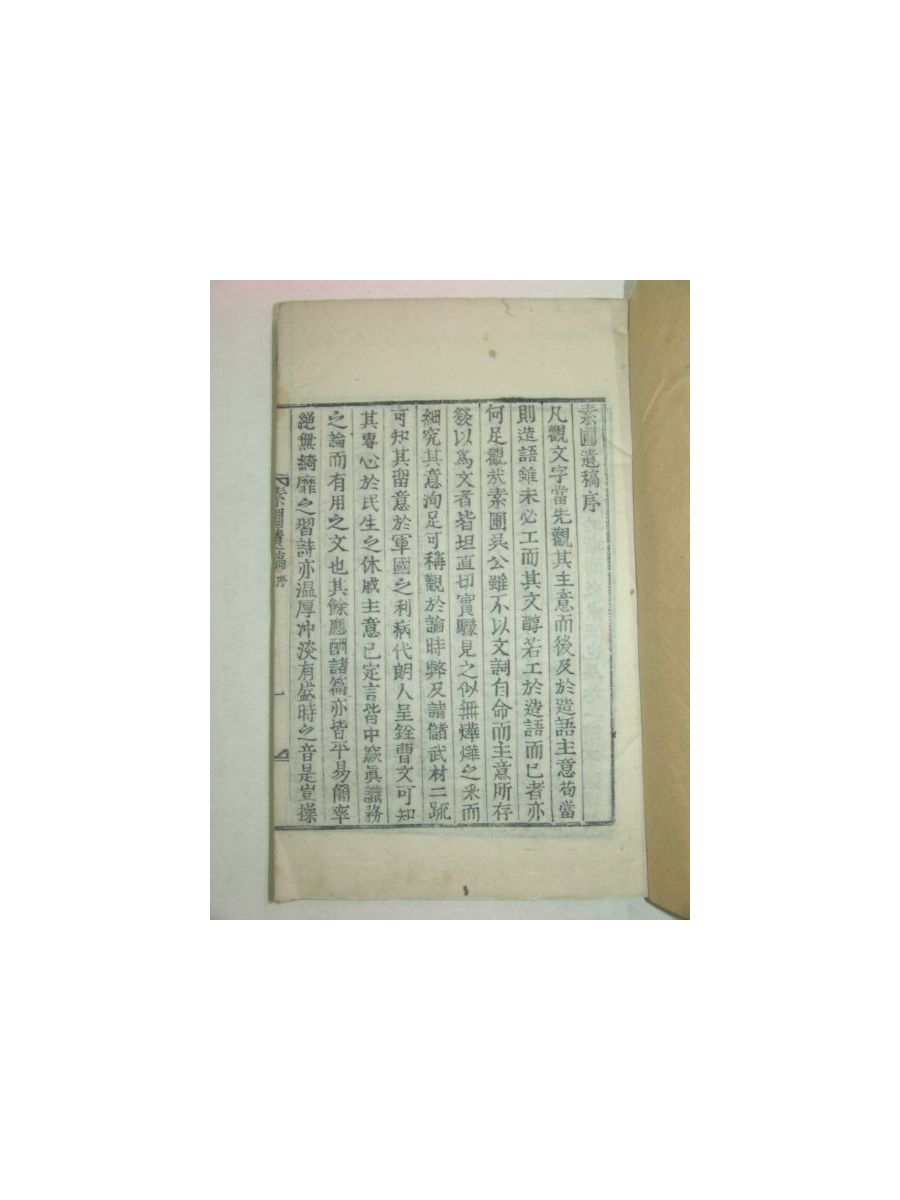 素圃遺稿序
凡觀文字當先觀其主意而後及於造語主意苟當
則造語雖未必工而其文醇若工於造語而已者亦
何足觀哉素圃吳公雖不以文詞自命而主意所存
發以爲文者皆坦直切實驟見之似無燁燁之采而
細究其意洵足可稱觀於論時弊及請儲武材二䟽
可知其留意於軍國之利病代朗人呈銓曹文可知
其專心於民生之休戚主意已定言皆中窾眞識務
之論而有用之文也其餘應酬諸篇亦皆平易簡率
絶無綺靡之習詩亦温厚冲淡有盛時之音是豈操
素圃遺稿 序 一